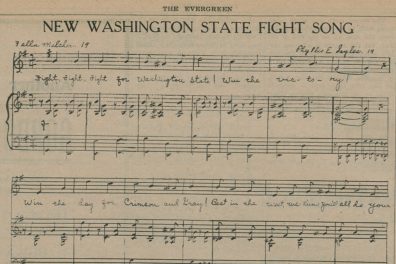 THE EVERGREEN
NEW WASHINGTON STATE FIGHT SONG
Zella Melcher '19 Phyllis E. Sayles '19
Fight, Fight, Fight for Washington State! Win the vic-to-ry!
Win the day for Crimson and Gray! Best in the west, we know you'll all do your